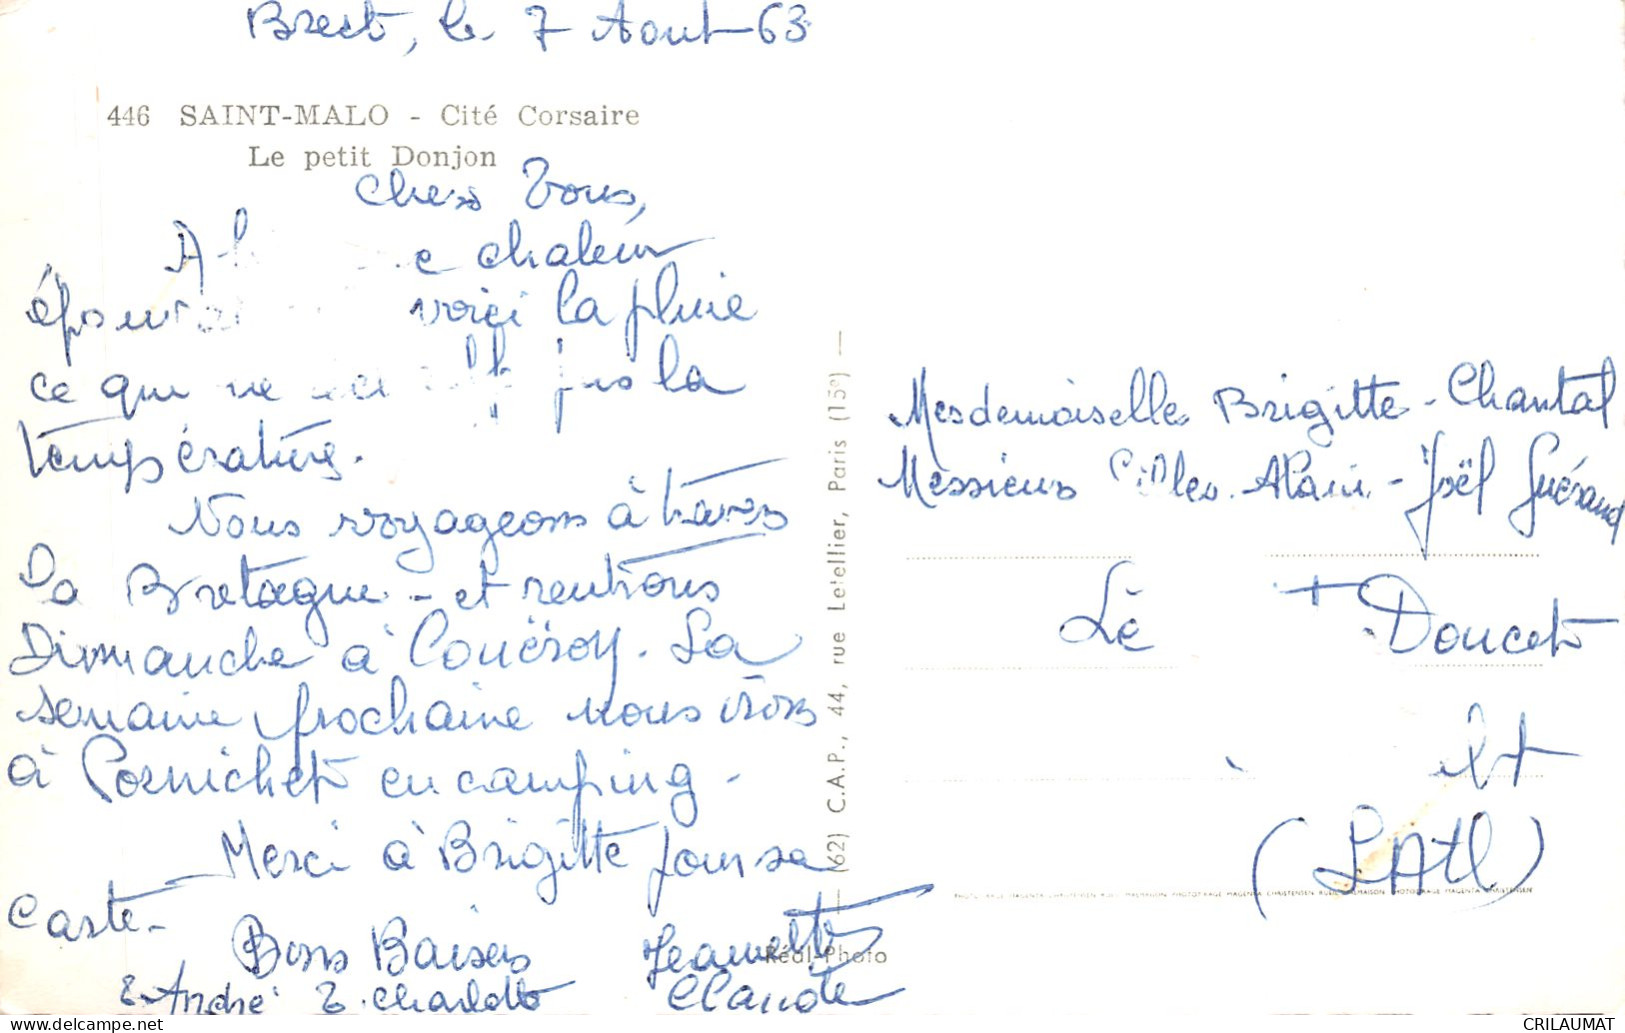 Brest, le 7 Aout 63
446 SAINT-MALO - Cité Corsaire
Le petit Donjon
Chers Vous,
A chaleur
voici la pluie
ce qui ne pas la
température.
Nous voyageons à travers
la Bretagne - et rentrons
Dimanche à Couëron. La
semaine prochaine nous irons
à Pornichet en camping -
Merci à Brigitte pour sa
Carte -
Bons Baisers Jeannette
T. André T. Charlotte Claude
(62) C.A.P., 44, rue Letellier, Paris (15e) —
Réal-Photo
Mesdemoiselles Brigitte - Chantal
Messieurs Gilles - Alain - Joël Guéraud
Le Doucet
(L Atl)
CRILAUMAT